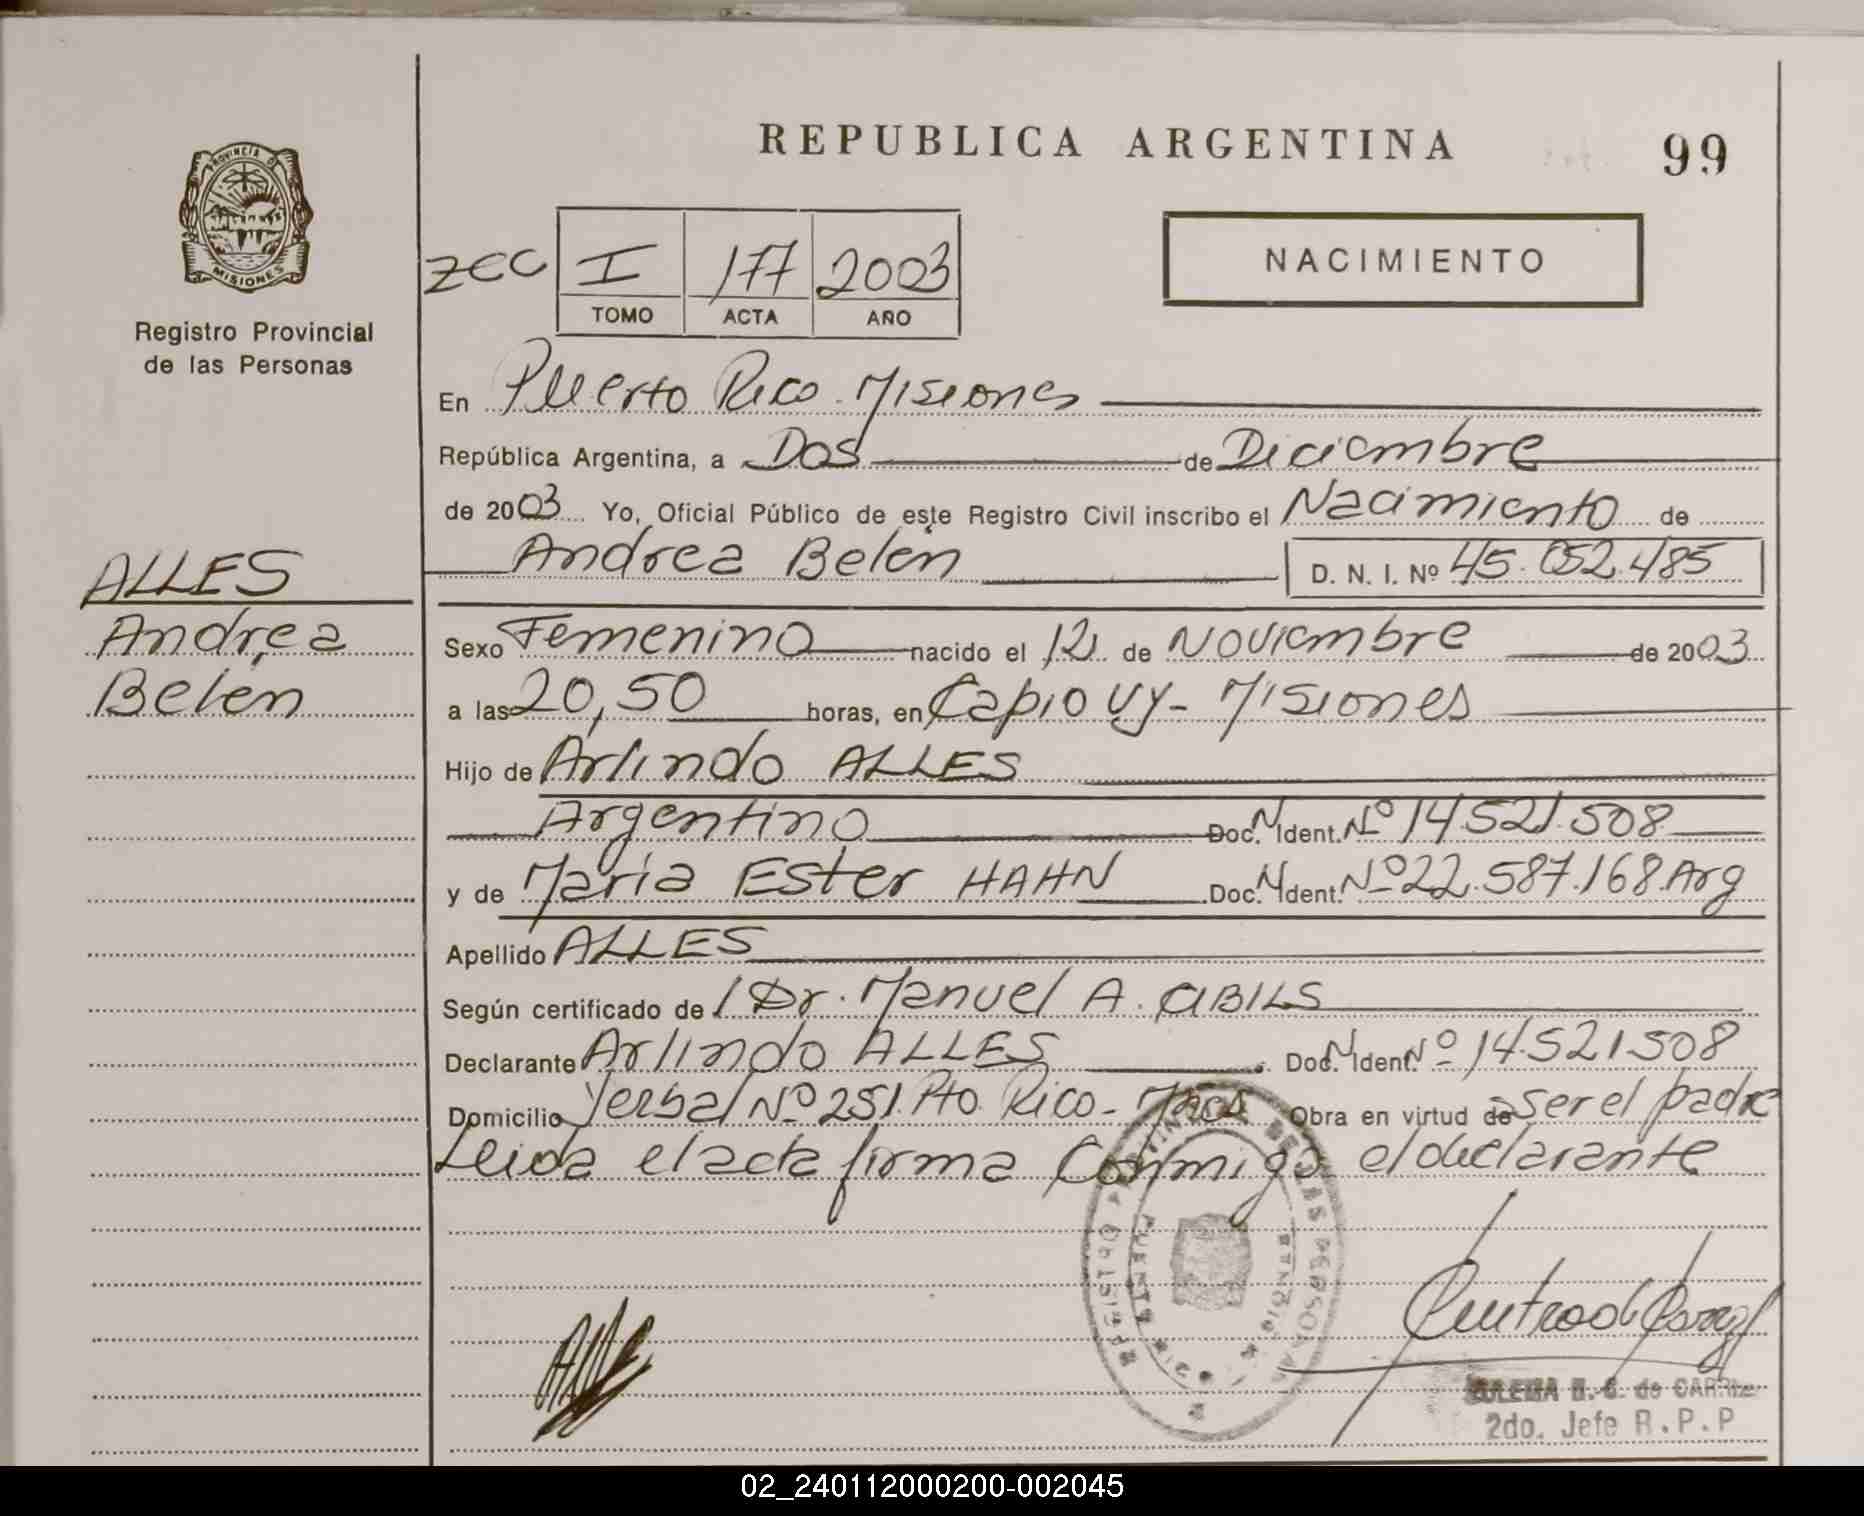 REPUBLICA ARGENTINA
99
PROVINCIA D
MISIONES
Registro Provincial
de las Personas
zcc I 177 2003
TOMO ACTA AÑO
NACIMIENTO
En Puerto Rico. Misiones
República Argentina, a Dos de Diciembre
de 2003 Yo, Oficial Público de este Registro Civil inscribo el Nacimiento de
Andrea Belén D. N. I. Nº 45.052.485
ALLES
Andrea
Belén
Sexo Femenino nacido el 12 de Noviembre de 2003
a las 20,50 horas, en Capiovy - Misiones
Hijo de Arlindo ALLES
Argentino Doc. N Ident. Nº 14.521.508
y de María Ester HAHN Doc. N Ident. Nº 22.587.168 Arg
Apellido ALLES
Según certificado de / Dr. Manuel A. ABILS
Declarante Arlindo ALLES Doc. N Ident. Nº 14.521508
Domicilio Yerbal Nº 251. Pto. Rico - Mnes Obra en virtud de ser el padre
Leida el acta firma conmigo el declarante
REGISTRO PROVINCIAL DE LAS PERSONAS
de CARR
2do. Jefe R.P.P
02_240112000200-002045